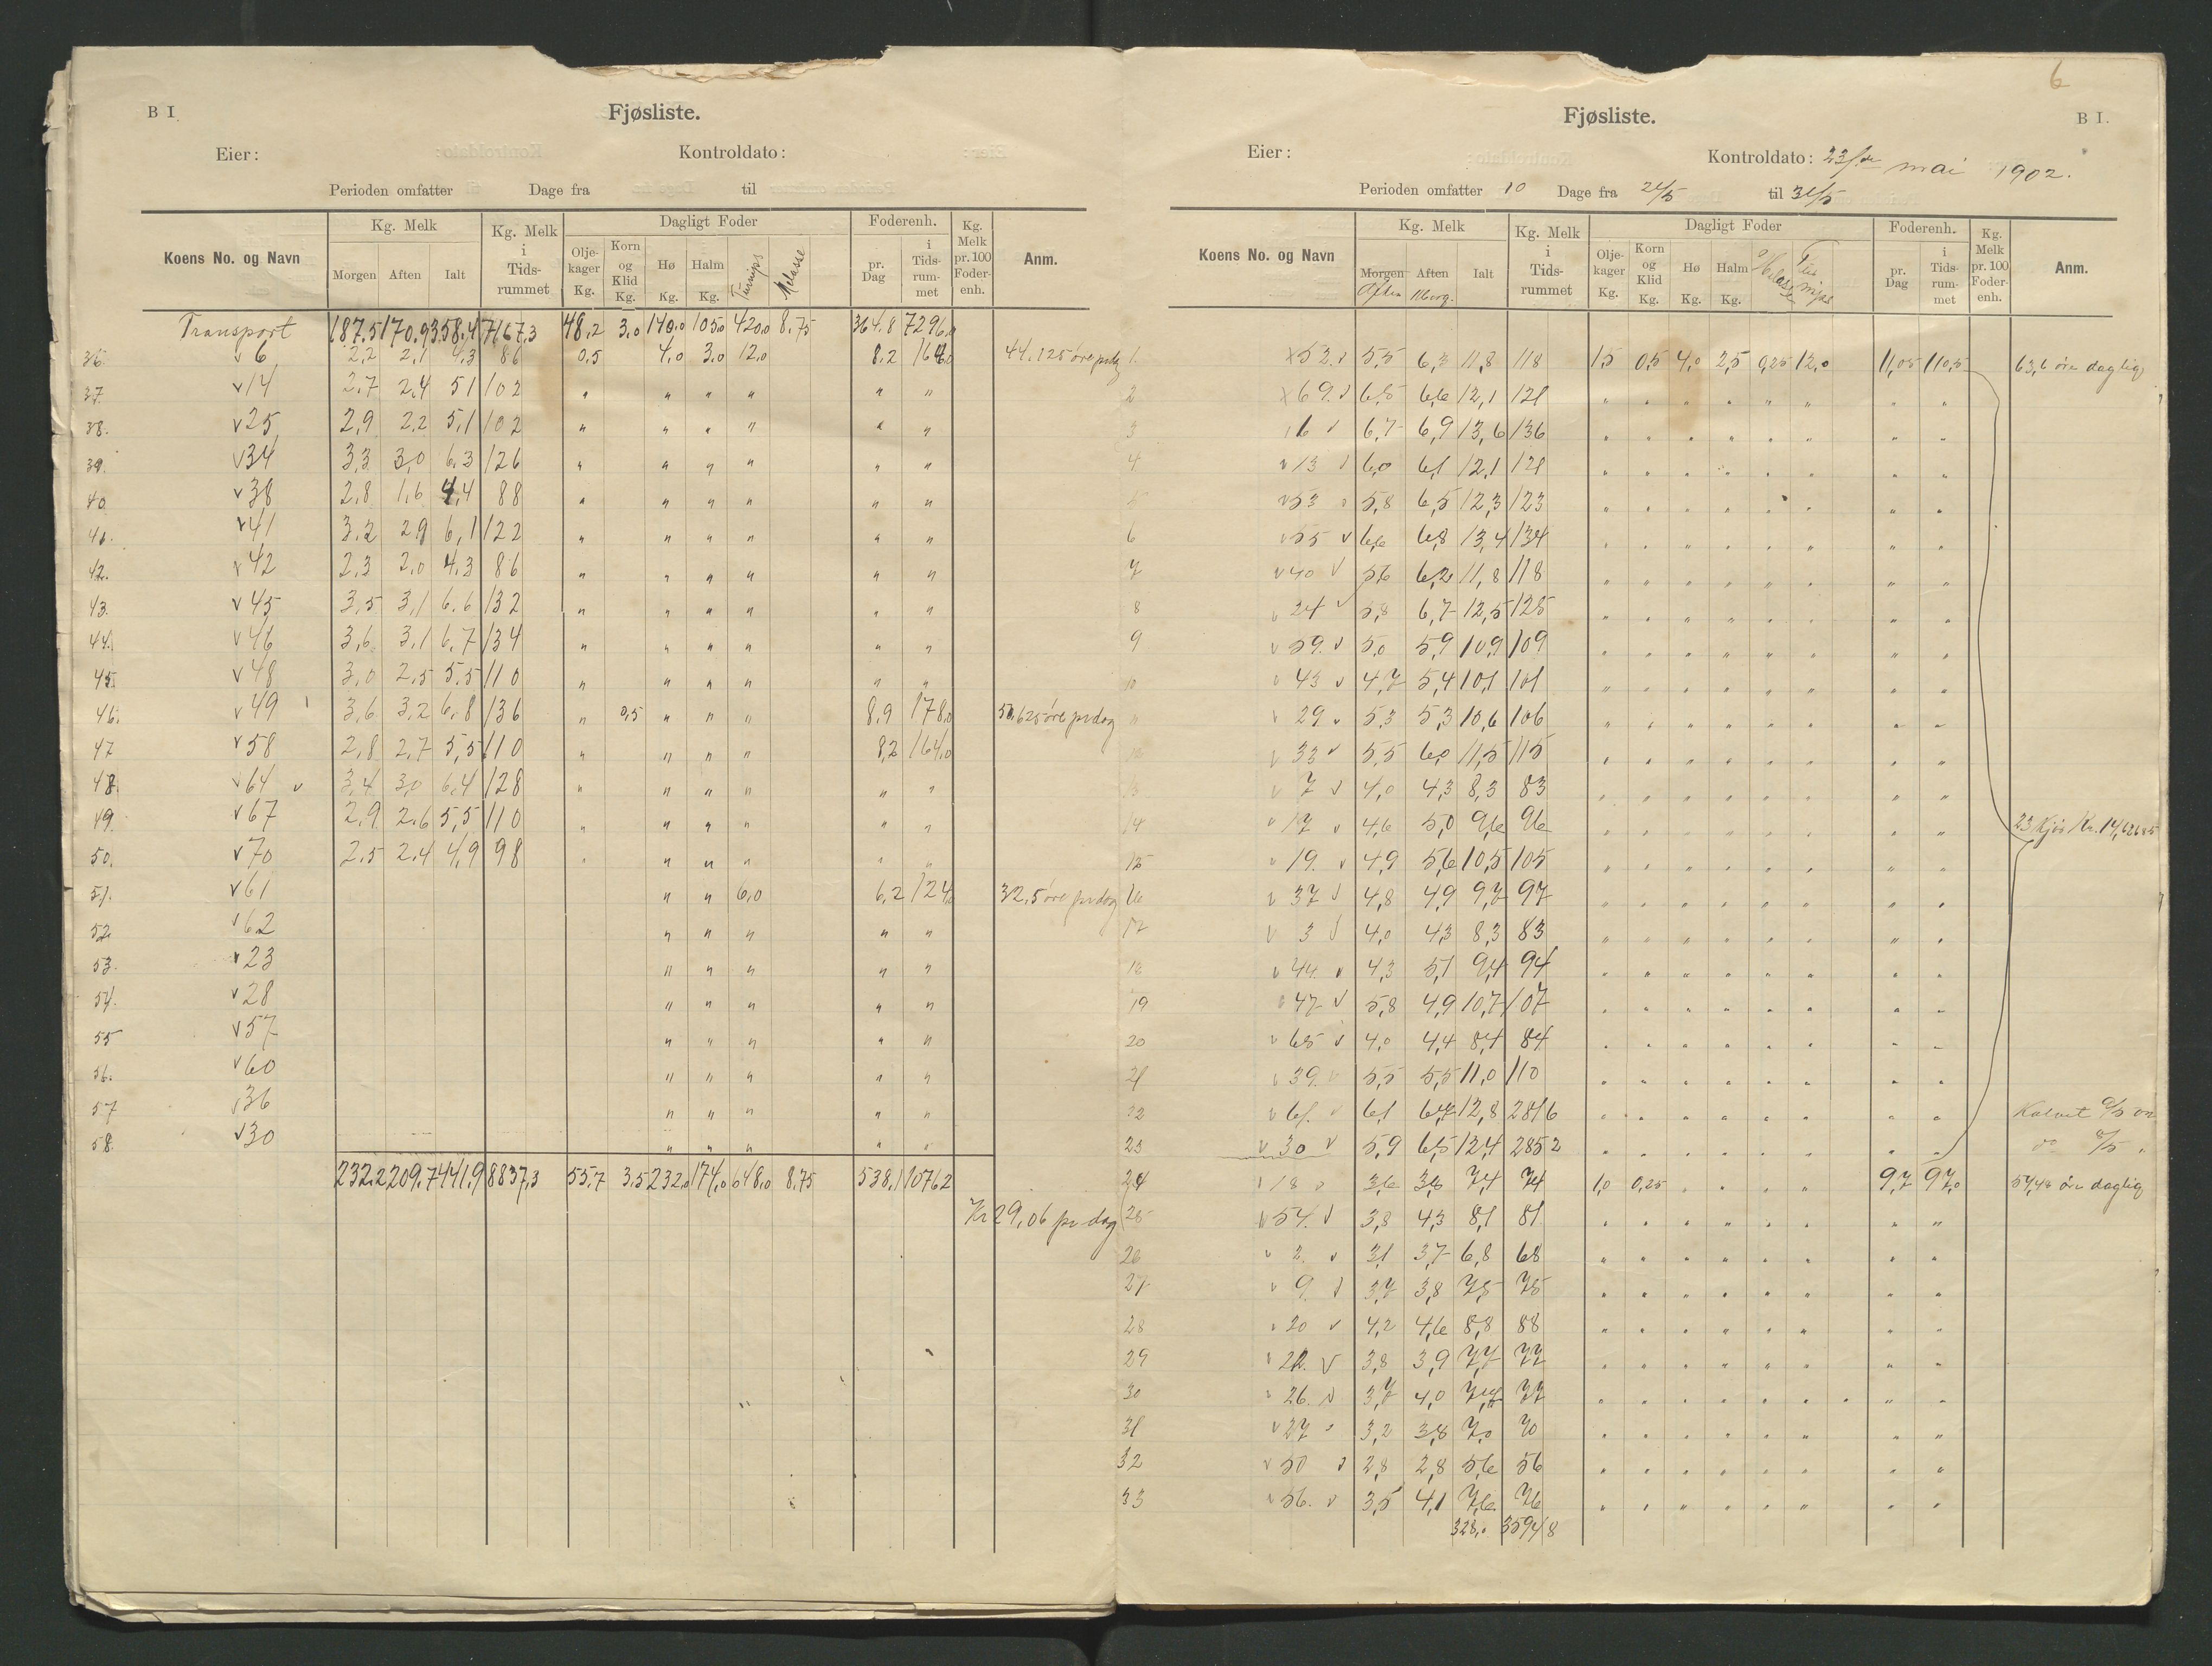 B I.
Fjøsliste.
Eier:
Kontroldato:
Perioden omfatter Dage fra til
Koens No. og Navn
Kg. Melk
Morgen Aften Ialt
Kg. Melk i Tidsrummet
Dagligt Foder
Oljekager Kg. Korn og Klid Kg. Hø Kg. Halm Kg. Turnips Melasse
Foderenh.
pr. Dag i Tidsrummet
Kg. Melk pr. 100 Foderenh.
Anm.
Transport 187.5 170.9 358.4 7167,3 48,2 3,0 140,0 105,0 420,0 8,75 364.8 7296,0
36. v 6 2,2 2,1 4,3 86 0,5 4,0 3,0 12,0 8,2 164,0 44.125 øre pr dg
37. v 14 2.7 2,4 51 102 " " " " " "
38. v 25 2,9 2,2 5,1 102 " " " " " "
39. v 34 3,3 3,0 6,3 126 " " " " " "
40. v 38 2,8 1,6 4,4 88 " " " " " "
41. v 41 3,2 2,9 6,1 122 " " " " " "
42. v 42 2,3 2,0 4,3 86 " " " " " "
43. v 45 3,5 3,1 6.6 132 " " " " " "
44. v 46 3,6 3,1 6,7 134 " " " " " "
45. v 48 3,0 2,5 5,5 110 " " " " " "
46. v 49 3,6 3,2 6,8 136 " 0,5 " " " 8,9 178,0 50,625 øre pr dag
47 v 58 2,8 2,7 5,5 110 " " " " 8,2 164,0
48. v 64 v 3,4 3,0 6,4 128 " " " " " "
49. v 67 2,9 2,6 5,5 110 " " " " " "
50. v 70 2,5 2,4 4,9 98 " " " " " "
51. v 61 " " 6,0 6,2 124,0 32,5 øre pr dag
52 v 62 " " " " "
53. v 23 " " " " "
54. v 28 " " " " "
55 v 57 " " " " "
56. v 60 " " " " "
57 v 36 " " " " "
58. v 30 " " " " "
232.2 209.7 441,9 8837,3 55,7 3,5 232,0 174,0 648,0 8,75 538,1 10762
Kr 29,06 pr dag
6
Fjøsliste.
B I.
Eier:
Kontroldato: 23/de mai 1902.
Perioden omfatter 10 Dage fra 21/5 til 31/5
Koens No. og Navn
Kg. Melk
Morgen Aften Ialt
Aften Morg.
Kg. Melk i Tidsrummet
Dagligt Foder
Oljekager Kg. Korn og Klid Kg. Hø Kg. Halm Kg. Melasse Turnips
Foderenh.
pr. Dag i Tidsrummet
Kg. Melk pr. 100 Foderenh.
Anm.
1. x 52. v 5,5 6,3 11,8 118 1,5 0,5 4,0 2,5 0,25 12,0 11,05 110,5 63,6 øre daglig
2 x 69. v 6,5 6,6 12,1 121 " " " " " " " "
3 16 v 6,7 6,9 13,6 136 " " " " " " " "
4 v 13 v 6,0 6,1 12,1 121 " " " " " " " "
5 v 53 v 5,8 6,5 12,3 123 " " " " " " " "
6 v 55 v 6,6 6,8 13,4 134 " " " " " " " "
7 v 40 v 5,6 6,2 11,8 118 " " " " " " " "
8 v 24 v 5,8 6,7 12,5 125 " " " " " " " "
9 v 59. v 5,0 5,9 10,9 109 " " " " " " " "
10 v 43 v 4,7 5,4 10,1 101 " " " " " " " "
11 v 29 v 5,3 5,3 10,6 106 " " " " " " " "
12 v 33 v 5,5 6,0 11,5 115 " " " " " " " "
13 v 7 v 4,0 4,3 8,3 83 " " " " " " " "
14 v 17 v 4,6 5,0 9,6 96 " " " " " " " " 23 Kjør Kr. 14,62685
15 v 19. v 4,9 5,6 10,5 105 " " " " " " " "
16 v 37 v 4,8 4,9 9,7 97 " " " " " " " "
17 v 3 v 4,0 4,3 8,3 83 " " " " " " " "
18 v 44. v 4,3 5,1 9,4 94 " " " " " " " "
19 v 47 v 5,8 4,9 10,7 107 " " " " " " " "
20 v 65 v 4,0 4,4 8,4 84 " " " " " " " "
21 v 39. v 5,5 5,5 11,0 110 " " " " " " " "
22 v 61. v 6,1 6,7 12,8 2816 " " " " " " " " Kalvet 9/5 02
23 v 30 v 5,9 6,5 12,4 2852 " " " " " " " " do 8/5 "
24 18 v 3,6 3,8 7,4 74 1,0 0,25 " " " " 9,7 97,0 54,48 øre daglig
25 v 54. v 3,8 4,3 8,1 81 " " " " " " " "
26 v 2. v 3,1 3,7 6,8 68 " " " " " " " "
27 v 9. v 3,7 3,8 7,5 75 " " " " " " " "
28 v 20 v 4,2 4,6 8,8 88 " " " " " " " "
29 v 22. v 3,8 3,9 7,7 77 " " " " " " " "
30 v 26. v 3,7 4,0 7,7 77 " " " " " " " "
31 v 27 v 3,2 3,8 7,0 70 " " " " " " " "
32 v 50 v 2,8 2,8 5,6 56 " " " " " " " "
33 v 56. v 3,5 4,1 7,6 76 " " " " " " " "
328,0 35948